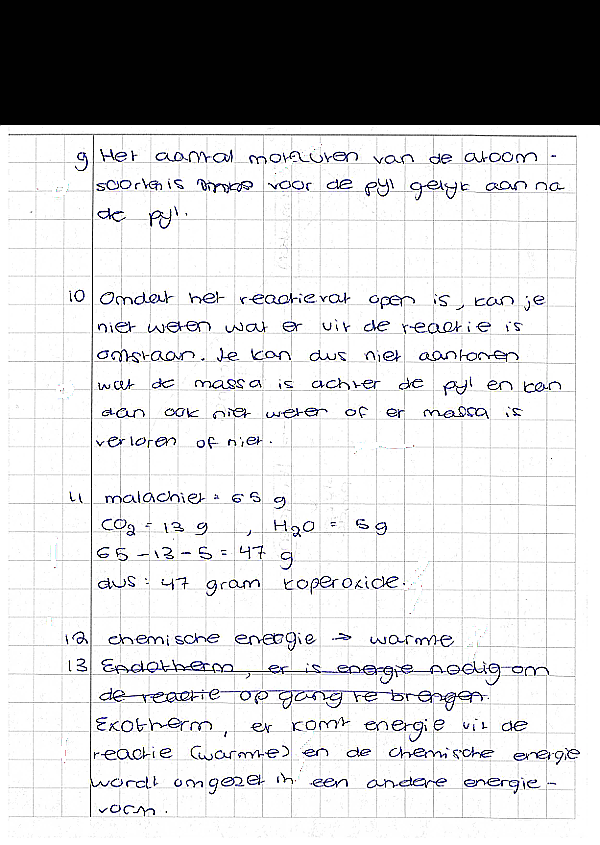 9 Het aantal moleculen van de atoom-
soorten is voor de pijl gelijk aan na
de pijl.
10 Omdat het reactievat open is, kan je
niet weten wat er uit de reactie is
ontstaan. Je kan dus niet aantonen
wat de massa is achter de pijl en kan
dan ook niet weten of er massa is
verloren of niet.
11 malachiet = 65 g
CO2 = 13 g , H2O = 5 g
65 - 13 - 5 = 47 g
dus: 47 gram koperoxide.
12 chemische energie → warmte
13 Endotherm, er is energie nodig om
de reactie op gang te brengen.
Exotherm, er komt energie uit de
reactie (warmte) en de chemische energie
wordt omgezet in een andere energie-
vorm.